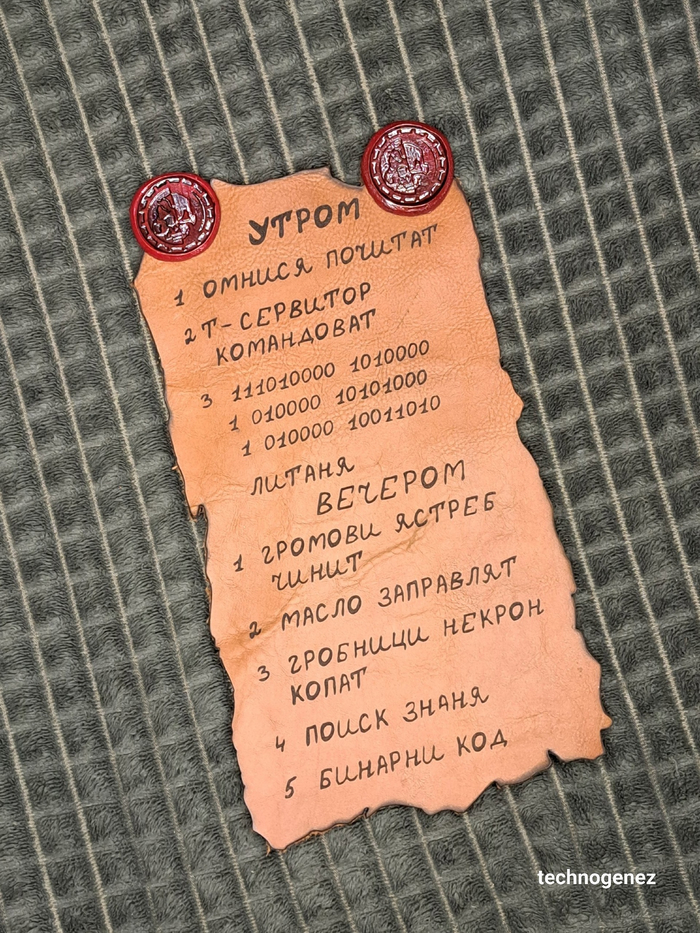 УТРОМ
1 ОМНИСЯ ПОЧИТАТ
2 Т-СЕРВИТОР
КОМАНДОВАТ
3 111010000 1010000
1 010000 10101000
1 010000 10011010
ЛИТАНЯ
ВЕЧЕРОМ
1 ГРОМОВИ ЯСТРЕБ
ЧИНИТ
2 МАСЛО ЗАПРАВЛЯТ
3 ГРОБНИЦИ НЕКРОН
КОПАТ
4 ПОИСК ЗНАНЯ
5 БИНАРНИ КОД
technogenez